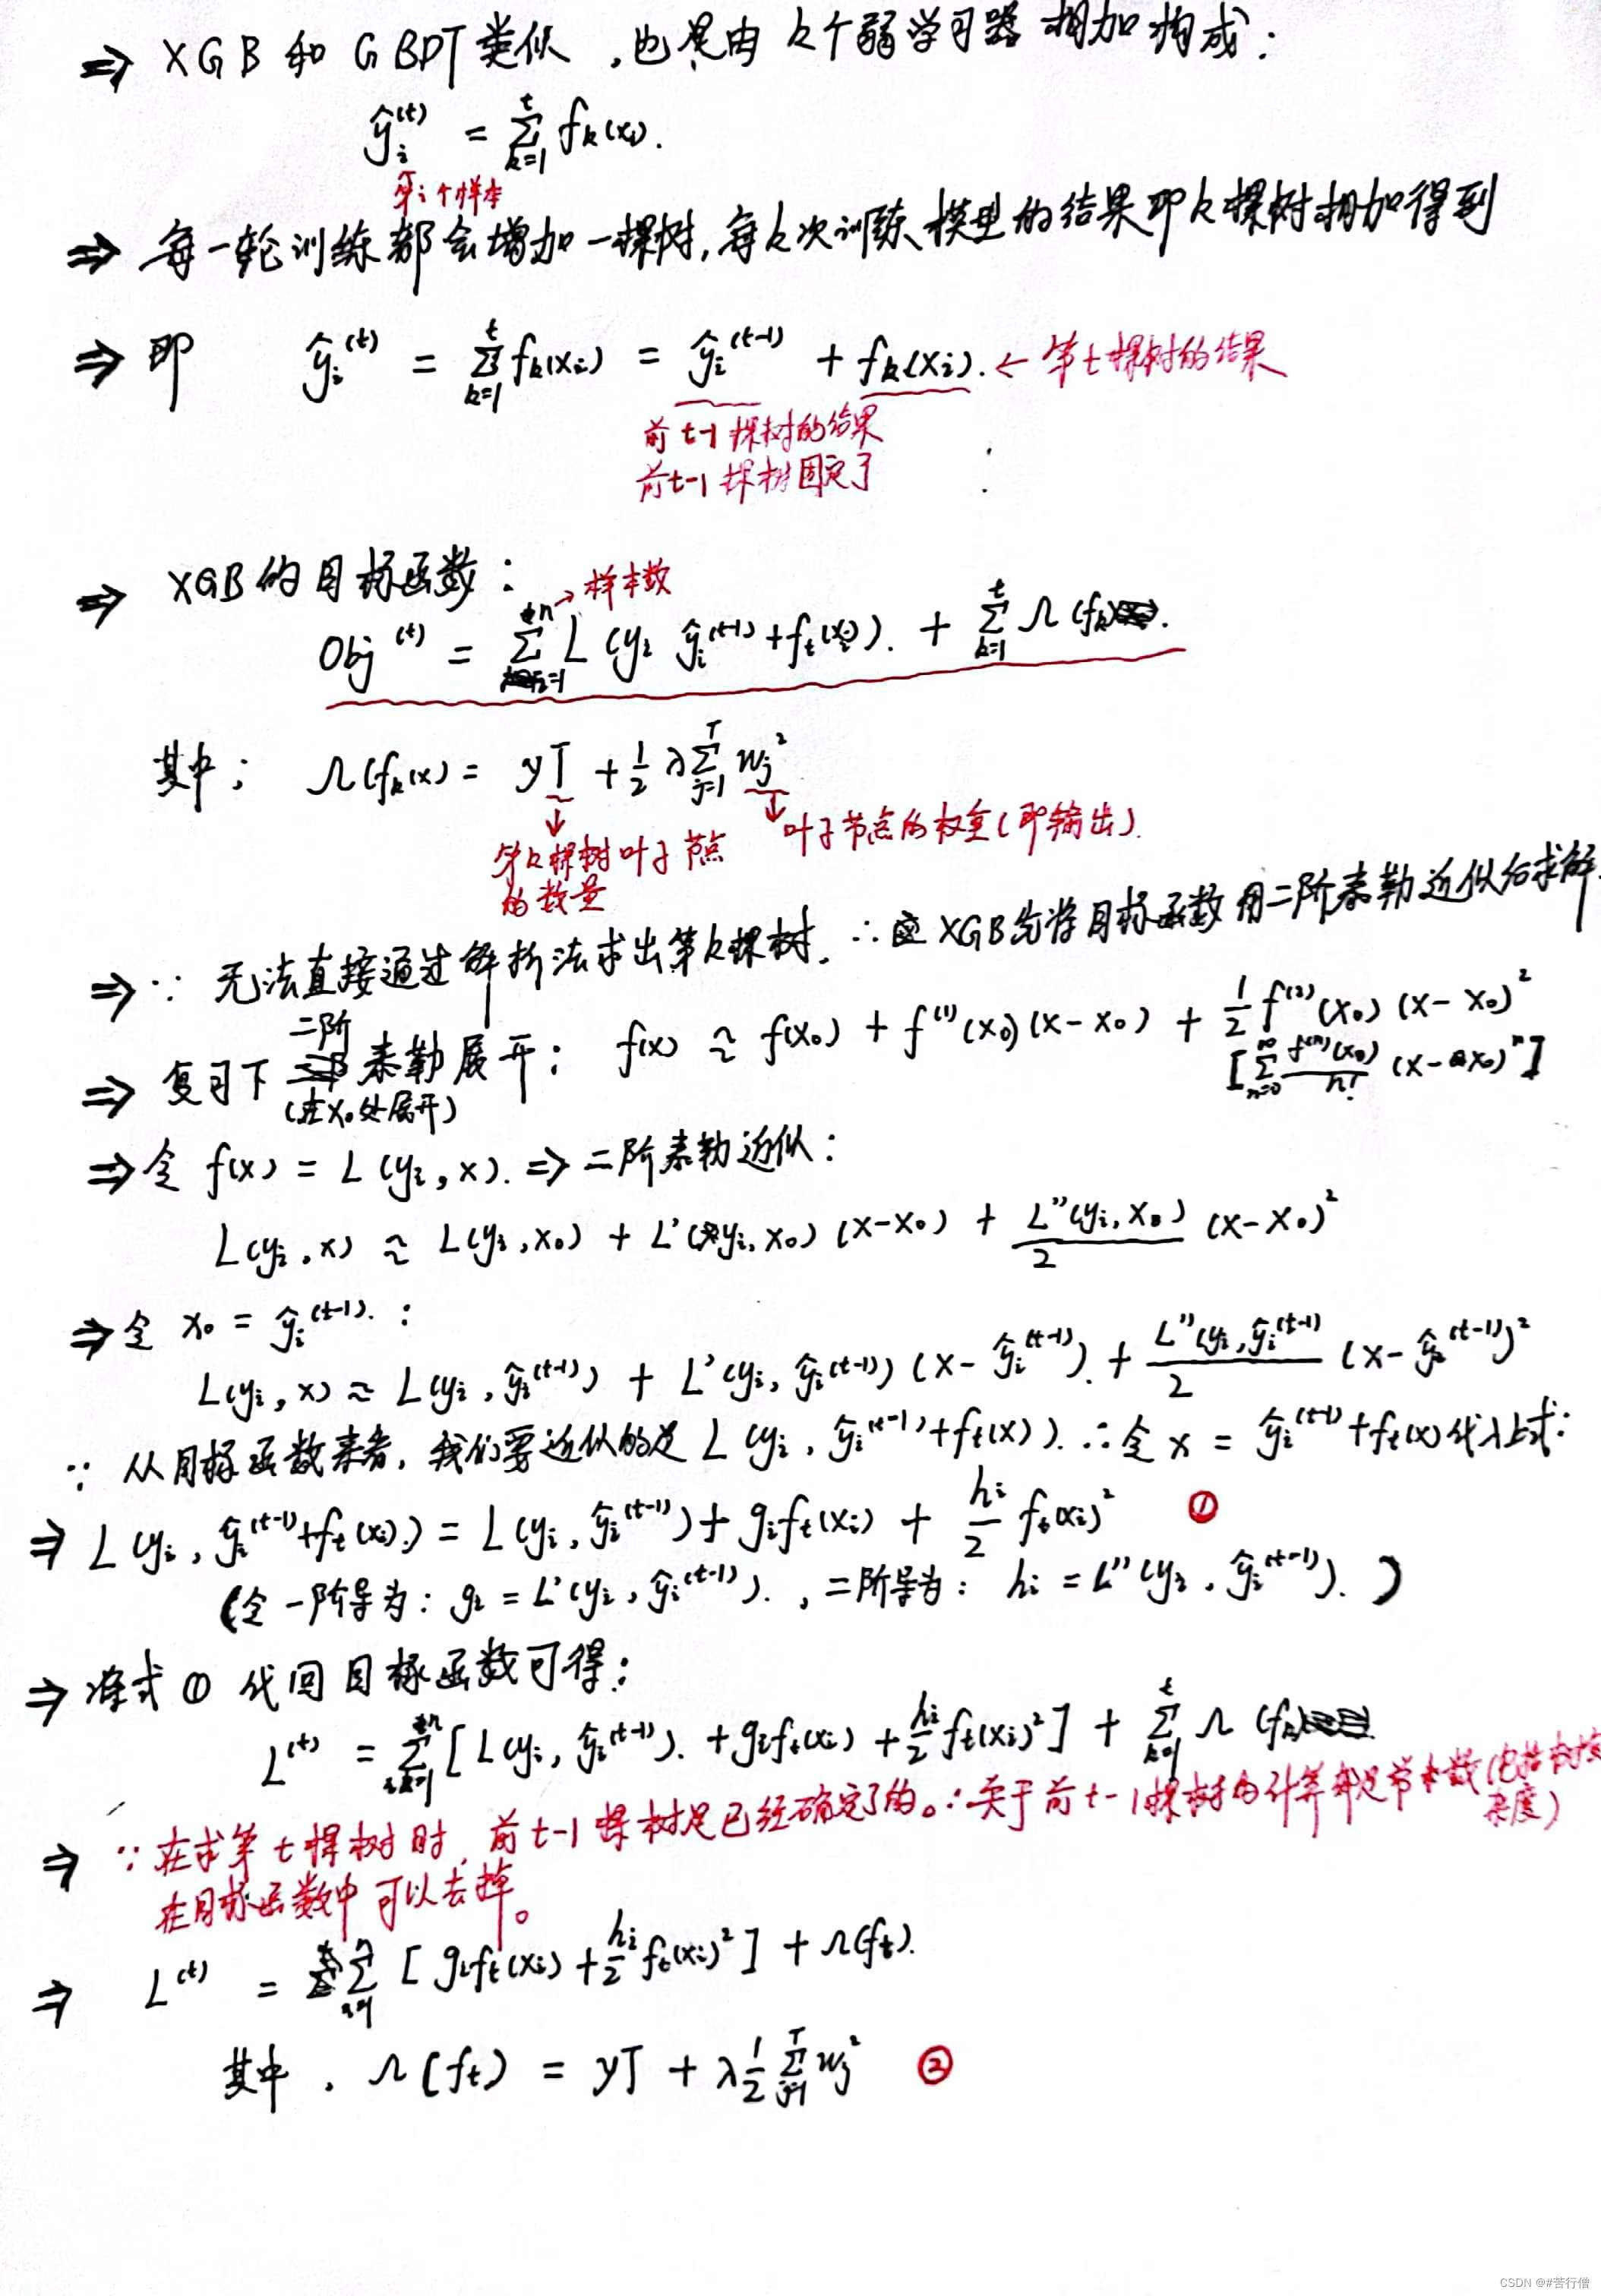 ⇒ XGB 和 GBDT 类似，也是由 k个弱学习器 相加构成：
ŷᵢ⁽ᵗ⁾ = Σₖ₌₁ᵗ fₖ(xᵢ).
第i个样本
⇒ 每一轮训练都会增加一棵树，每k次训练模型的结果即k棵树相加得到
⇒ 即 ŷᵢ⁽ᵗ⁾ = Σₖ₌₁ᵗ fₖ(xᵢ) = ŷᵢ⁽ᵗ⁻¹⁾ + fₖ(xᵢ). ← 第t棵树的结果
前t-1棵树的结果
前t-1棵树固定了
⇒ XGB的目标函数：
→ 样本数
Obj⁽ᵗ⁾ = Σᵢ₌₁ⁿ L(yᵢ ŷᵢ⁽ᵗ⁻¹⁾+fₜ(xᵢ)). + Σₖ₌₁ᵗ Ω(fₖ).
其中； Ω(fₖ(x) = γT + ½ λ Σⱼ₌₁ᵀ wⱼ²
↓ 第k棵树叶子节点 ↓ 叶子节点的权重(即输出).
的数量
⇒ ∵ 无法直接通过解析法求出第k棵树. ∴ XGB先将目标函数用二阶泰勒近似后求解.
⇒ 复习下 二阶 泰勒展开： f(x) ≈ f(x₀) + f⁽¹⁾(x₀)(x-x₀) + ½ f⁽²⁾(x₀)(x-x₀)²
(在x₀处展开) [Σₙ₌₀^∞ f⁽ⁿ⁾(x₀)/n! (x-x₀)ⁿ]
⇒ 令 f(x) = L(yᵢ, x). ⇒ 二阶泰勒近似：
L(yᵢ, x) ≈ L(yᵢ, x₀) + L'(yᵢ, x₀)(x-x₀) + L''(yᵢ, x₀)/2 (x-x₀)²
⇒ 令 x₀ = ŷᵢ⁽ᵗ⁻¹⁾. ：
L(yᵢ, x) ≈ L(yᵢ, ŷᵢ⁽ᵗ⁻¹⁾) + L'(yᵢ, ŷᵢ⁽ᵗ⁻¹⁾)(x-ŷᵢ⁽ᵗ⁻¹⁾). + L''(yᵢ, ŷᵢ⁽ᵗ⁻¹⁾/2 (x-ŷᵢ⁽ᵗ⁻¹⁾)²
∵ 从目标函数来看，我们要近似的是 L(yᵢ, ŷᵢ⁽ᵗ⁻¹⁾+fₜ(x)). ∴ 令 x = ŷᵢ⁽ᵗ⁻¹⁾+fₜ(x)代入上式：
⇒ L(yᵢ, ŷᵢ⁽ᵗ⁻¹⁾+fₜ(xᵢ).) = L(yᵢ, ŷᵢ⁽ᵗ⁻¹⁾) + gᵢfₜ(xᵢ) + hᵢ/2 fₜ(xᵢ)² ①
(令一阶导为：gᵢ = L'(yᵢ, ŷᵢ⁽ᵗ⁻¹⁾). ，二阶导为： hᵢ = L''(yᵢ, ŷᵢ⁽ᵗ⁻¹⁾). )
⇒ 将式① 代回目标函数可得：
L⁽ᵗ⁾ = Σᵢ₌₁ⁿ [L(yᵢ, ŷᵢ⁽ᵗ⁻¹⁾). + gᵢfₜ(xᵢ) + hᵢ/2 fₜ(xᵢ)²] + Σₖ₌₁ᵗ Ω(fₖ)
⇒ ∵ 在求第t棵树时，前t-1棵树是已经确定了的。∴ 关于前t-1棵树的计算都是常数(包括树
杂度)
在目标函数中可以去掉。
⇒ L⁽ᵗ⁾ = Σᵢ₌₁ⁿ [gᵢfₜ(xᵢ) + hᵢ/2 fₜ(xᵢ)²] + Ω(fₜ).
其中. Ω(fₜ) = γT + λ ½ Σⱼ₌₁ᵀ wⱼ² ②
CSDN @#苦行僧